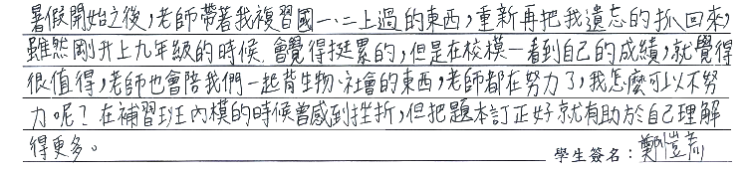 暑假開始之後，老師帶著我複習國一、二上過的東西，重新再把我遺忘的抓回來，
雖然剛升上九年級的時候，會覺得挺累的，但是在校模一看到自己的成績，就覺得
很值得，老師也會陪我們一起背生物、社會的東西，老師都在努力了，我怎麼可以不努
力呢？在補習班內模的時候曾感到挫折，但把題本訂正好就有助於自己理解
得更多。
學生簽名：鄭愷